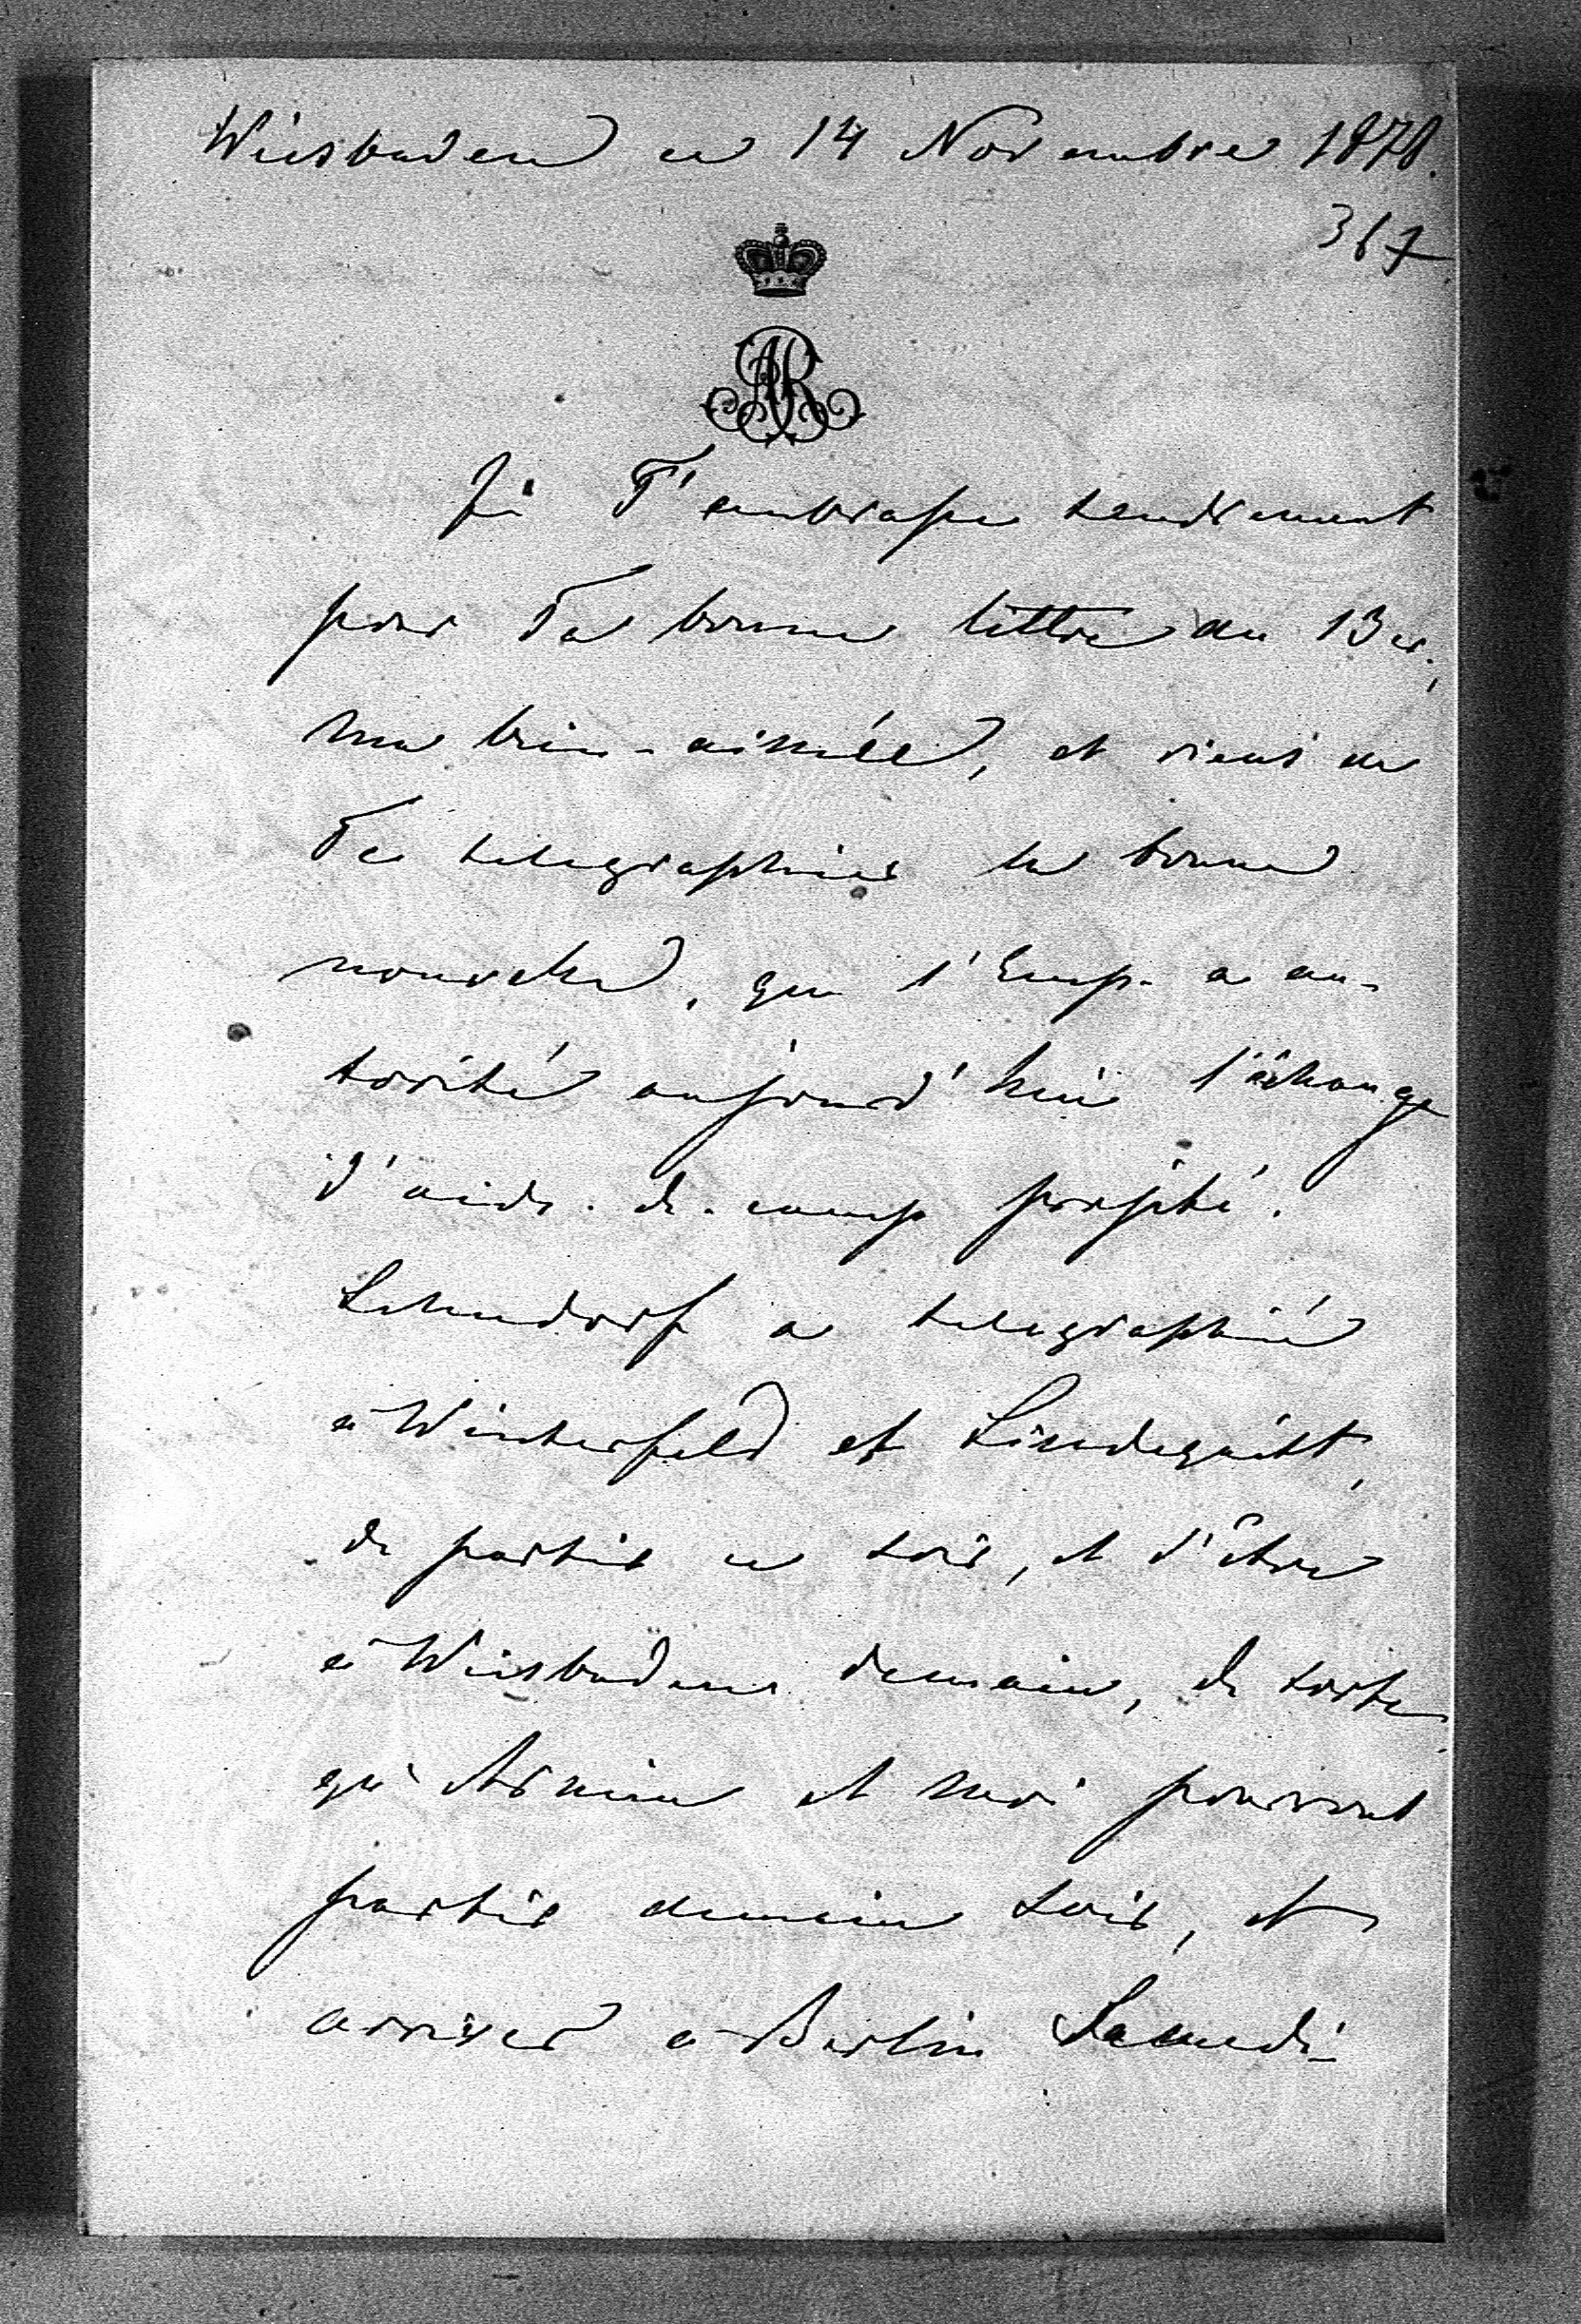 Wiesbaden ce 14 Novembre 1878.
317
AR
Je T'embrasse tendrement
pour Ta bonne lettre du 13 cr.,
ma bien-aimée, et viens de
Te telegraphier la bonne
nouvelle, que l'Emp. a au-
torisé aujourd'hui l'échange
d'aide-de-camp projeté.
Lehndorff a telegraphié
à Winterfeld et Lindequist,
de partir ce soir, et d'être
à Wiesbaden demain, de sorte
qu'Arnim et moi pourront
partir demain soir, et
arriver à Berlin Samedi